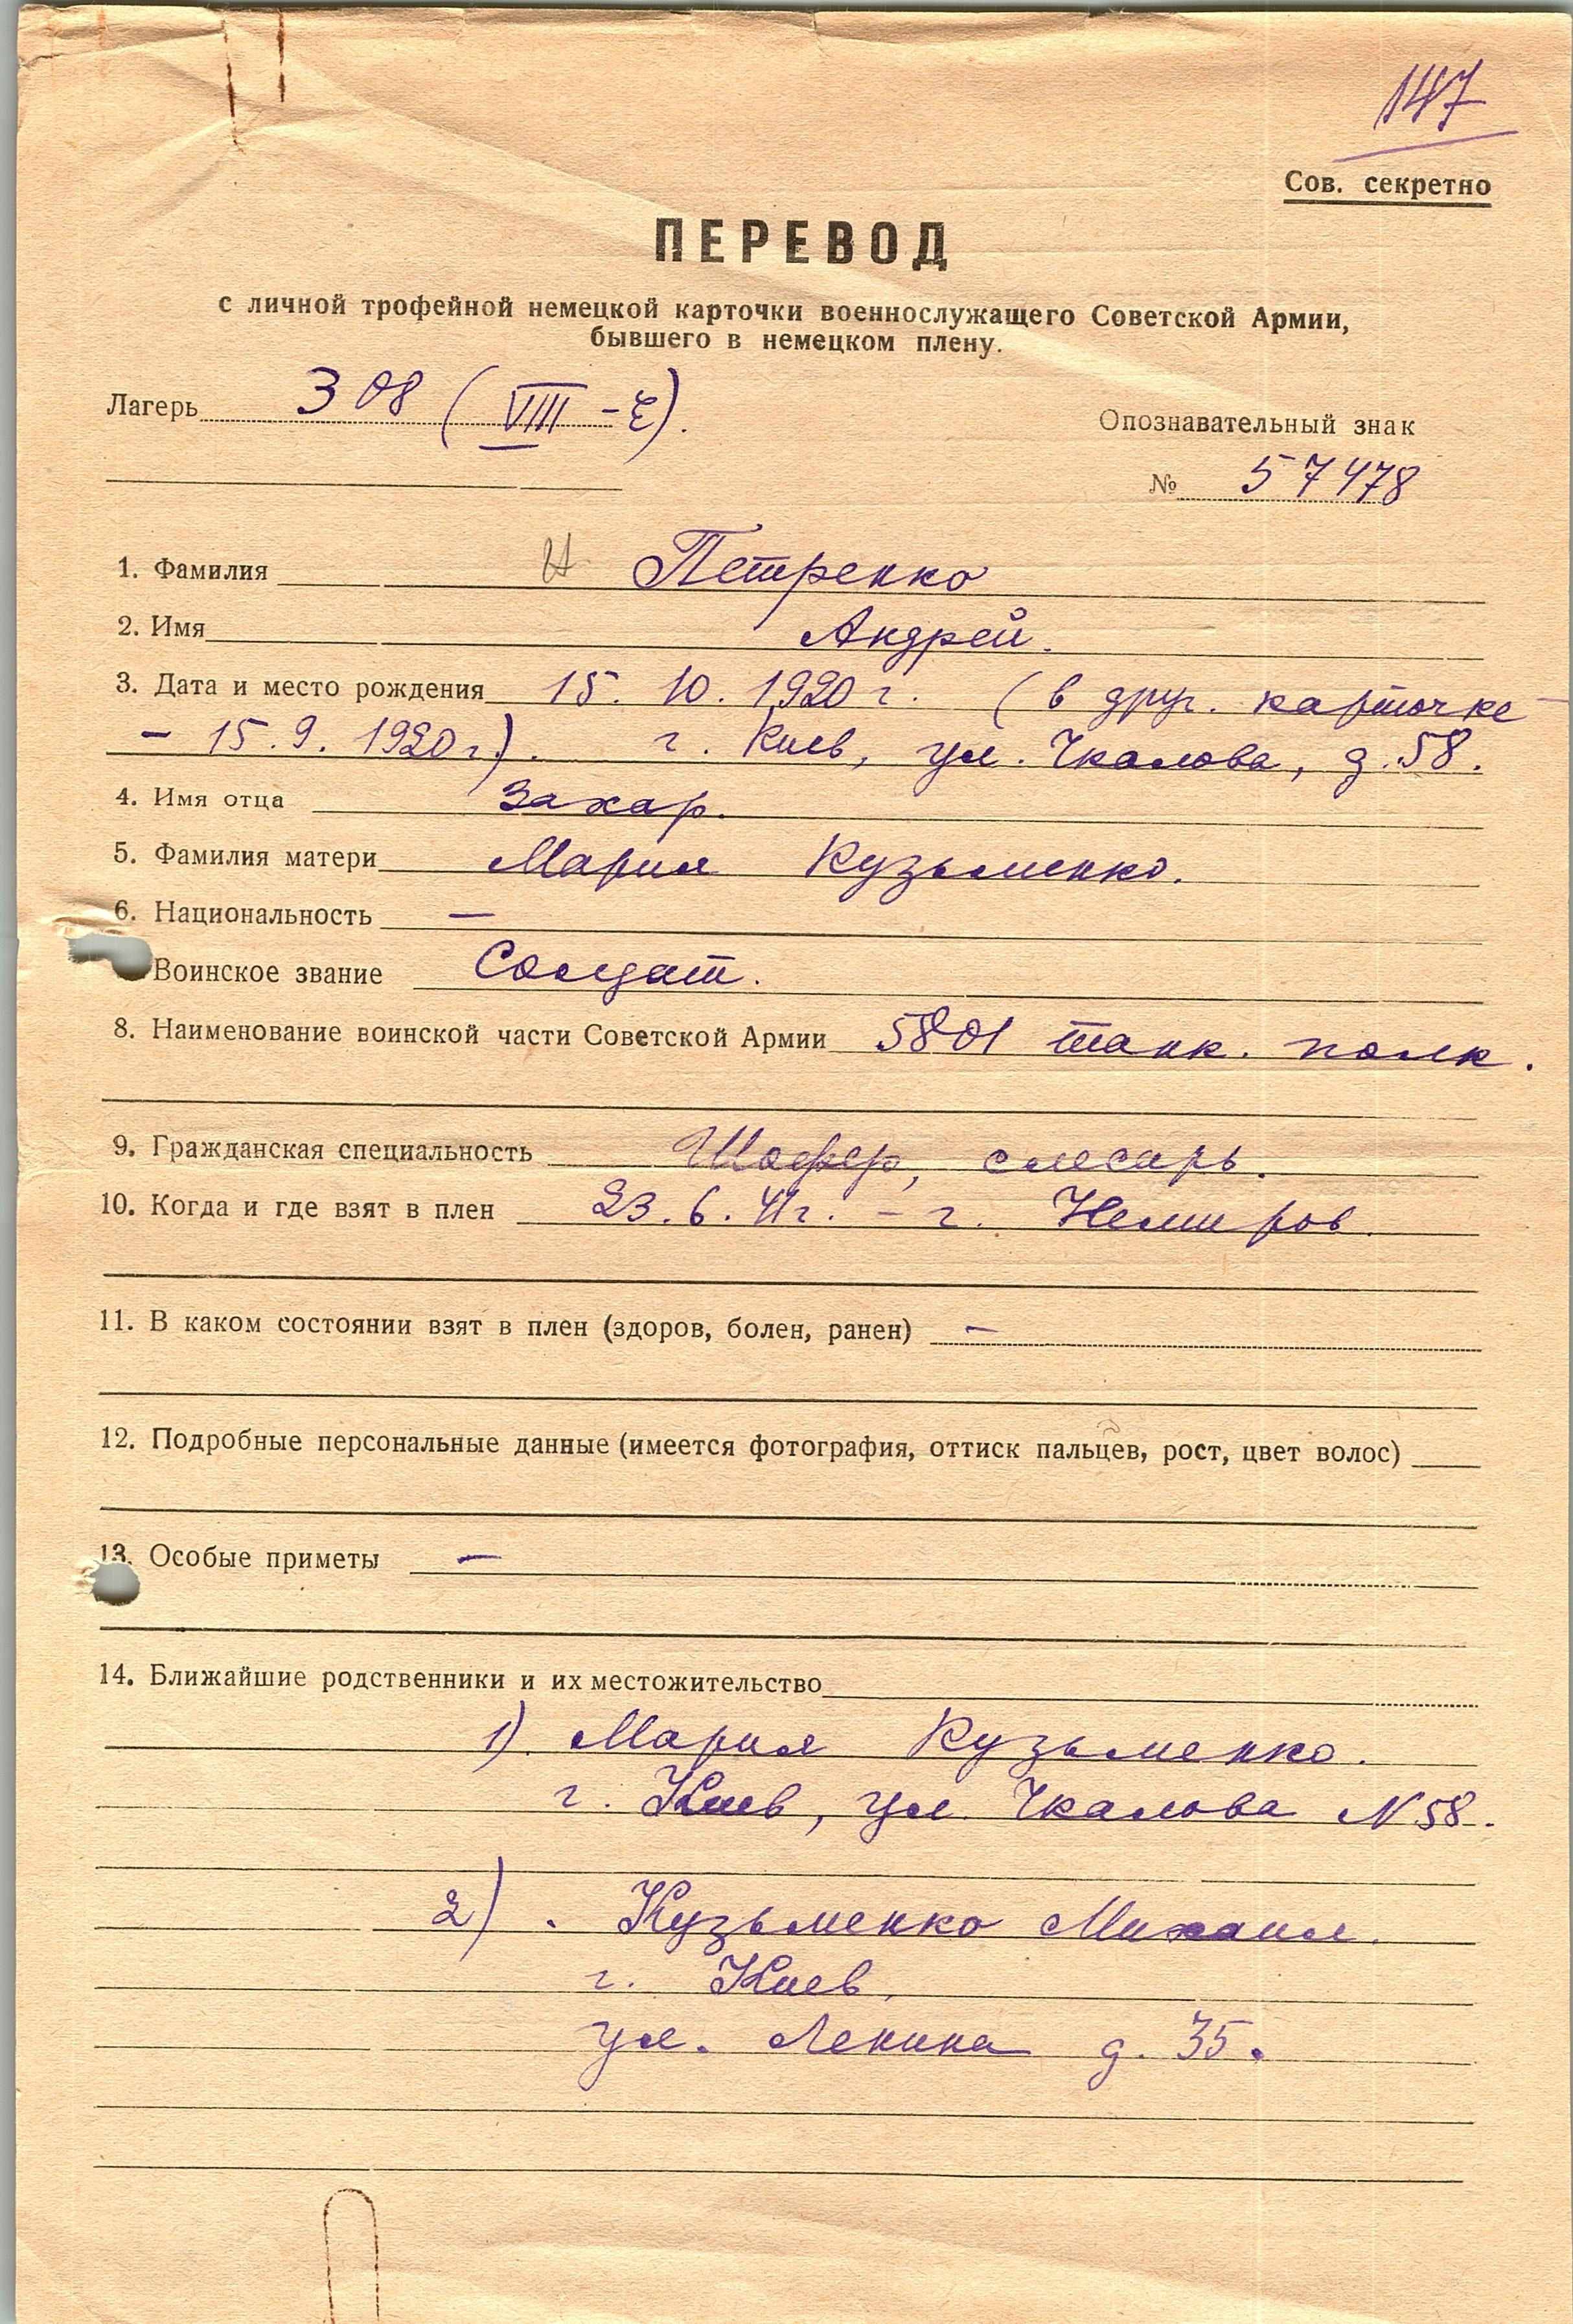 147
Сов. секретно
ПЕРЕВОД
с личной трофейной немецкой карточки военнослужащего Советской Армии,
бывшего в немецком плену.
Лагерь 308 (VIII - E).
Опознавательный знак
№ 57478
1. Фамилия Петренко
2. Имя Андрей.
3. Дата и место рождения 15. 10. 1920 г. (в друг. карточке
- 15. 9. 1920 г.). г. Киев, ул. Чкалова, д. 58.
4. Имя отца Захар.
5. Фамилия матери Мария Кузьменко.
6. Национальность —
Воинское звание Солдат.
8. Наименование воинской части Советской Армии 5801 танк. полк.
9. Гражданская специальность Шофер, слесарь.
10. Когда и где взят в плен 23. 6. 41 г. - г. Немиров.
11. В каком состоянии взят в плен (здоров, болен, ранен) —
12. Подробные персональные данные (имеется фотография, оттиск пальцев, рост, цвет волос)
13. Особые приметы —
14. Ближайшие родственники и их местожительство
1). Мария Кузьменко.
г. Киев, ул. Чкалова N 58.
2). Кузьменко Михаил.
г. Киев,
ул. Ленина д. 35.